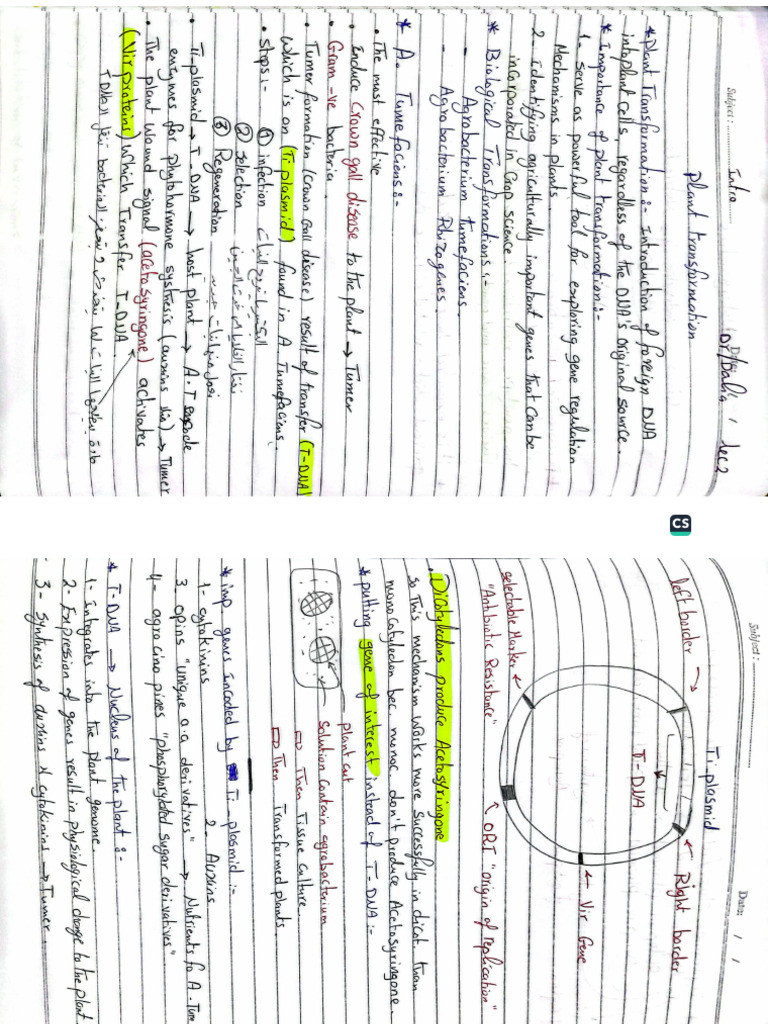 Subject: Intro
Date: / /
Dr/Dalia lec2
plant transformation
*plant Transformation :- Introduction of foreign DNA
into plant cells, regardless of the DNA's original source.
* Importance of plant transformation :-
1- serve as powerful tool for exploring gene regulation
Mechanisms in plants.
2- Identifying agriculturally important genes that can be
incorporated in Crop science
* Biological Transformations :-
- Agrobacterium tumefaciens.
- Agrobacterium Rhizogenes
* A. Tumefaciens :-
• The most effective
• Induce Crown gall disease to the plant → Tumer
• Gram -ve bacteria
• Tumer formation (Crown Gall disease) result of transfer (T-DNA)
which is on (Ti plasmid) found in A Tumefaciens.
• Steps :- ① infection
② selection
③ Regeneration
• Ti plasmid → T-DNA → host plant → A.T encode
enzymes for phytohormone systhesis (auxins) → Tumer
• The plant wound signal (aceto syringone) activates
(Vir proteins) which Transfer T-DNA.
Subject:
Date: / /
Ti plasmid
left border
Right border
T-DNA
Vir Gene
selectable Marker
"Antibiotic Resistance"
ORI "origin of replication"
• Dicotyledons produce Acetosyringone
so This mechanism works more successfully in dicot than
monocotyledon bec monoc don't produce Acetosyringone.
* putting gene of interest instead of T-DNA :-
plant cut
solution Contain agrobacterium
⇨ Then Tissue Culture.
⇨ Then Transformed plants
* imp genes incoded by Ti-plasmid :-
1- cytokinins 2- Auxins
3- opins "unique a.a derivatives" → Nutrients fo A.Tume
4- agrocinopines "phosphorylated sugar derivatives"
* T-DNA → Nucleus of the plant :-
1- Integrates into the plant genome
2- Expression of genes result in physiological change to the plant
3- synthesis of auxins & cytokinins → Tumer.
CS